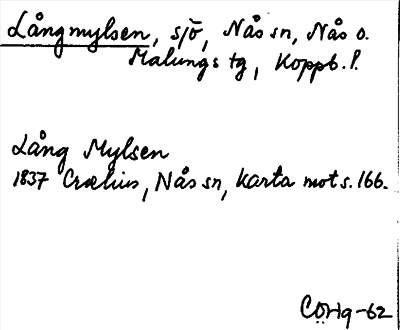 Långmylsen, sjö, Nås sn, Nås o.
Malungs tg, Koppb. l.
Lång Mylsen
1837 Crælius, Nås sn, karta mot s. 166.
CÖHg-62